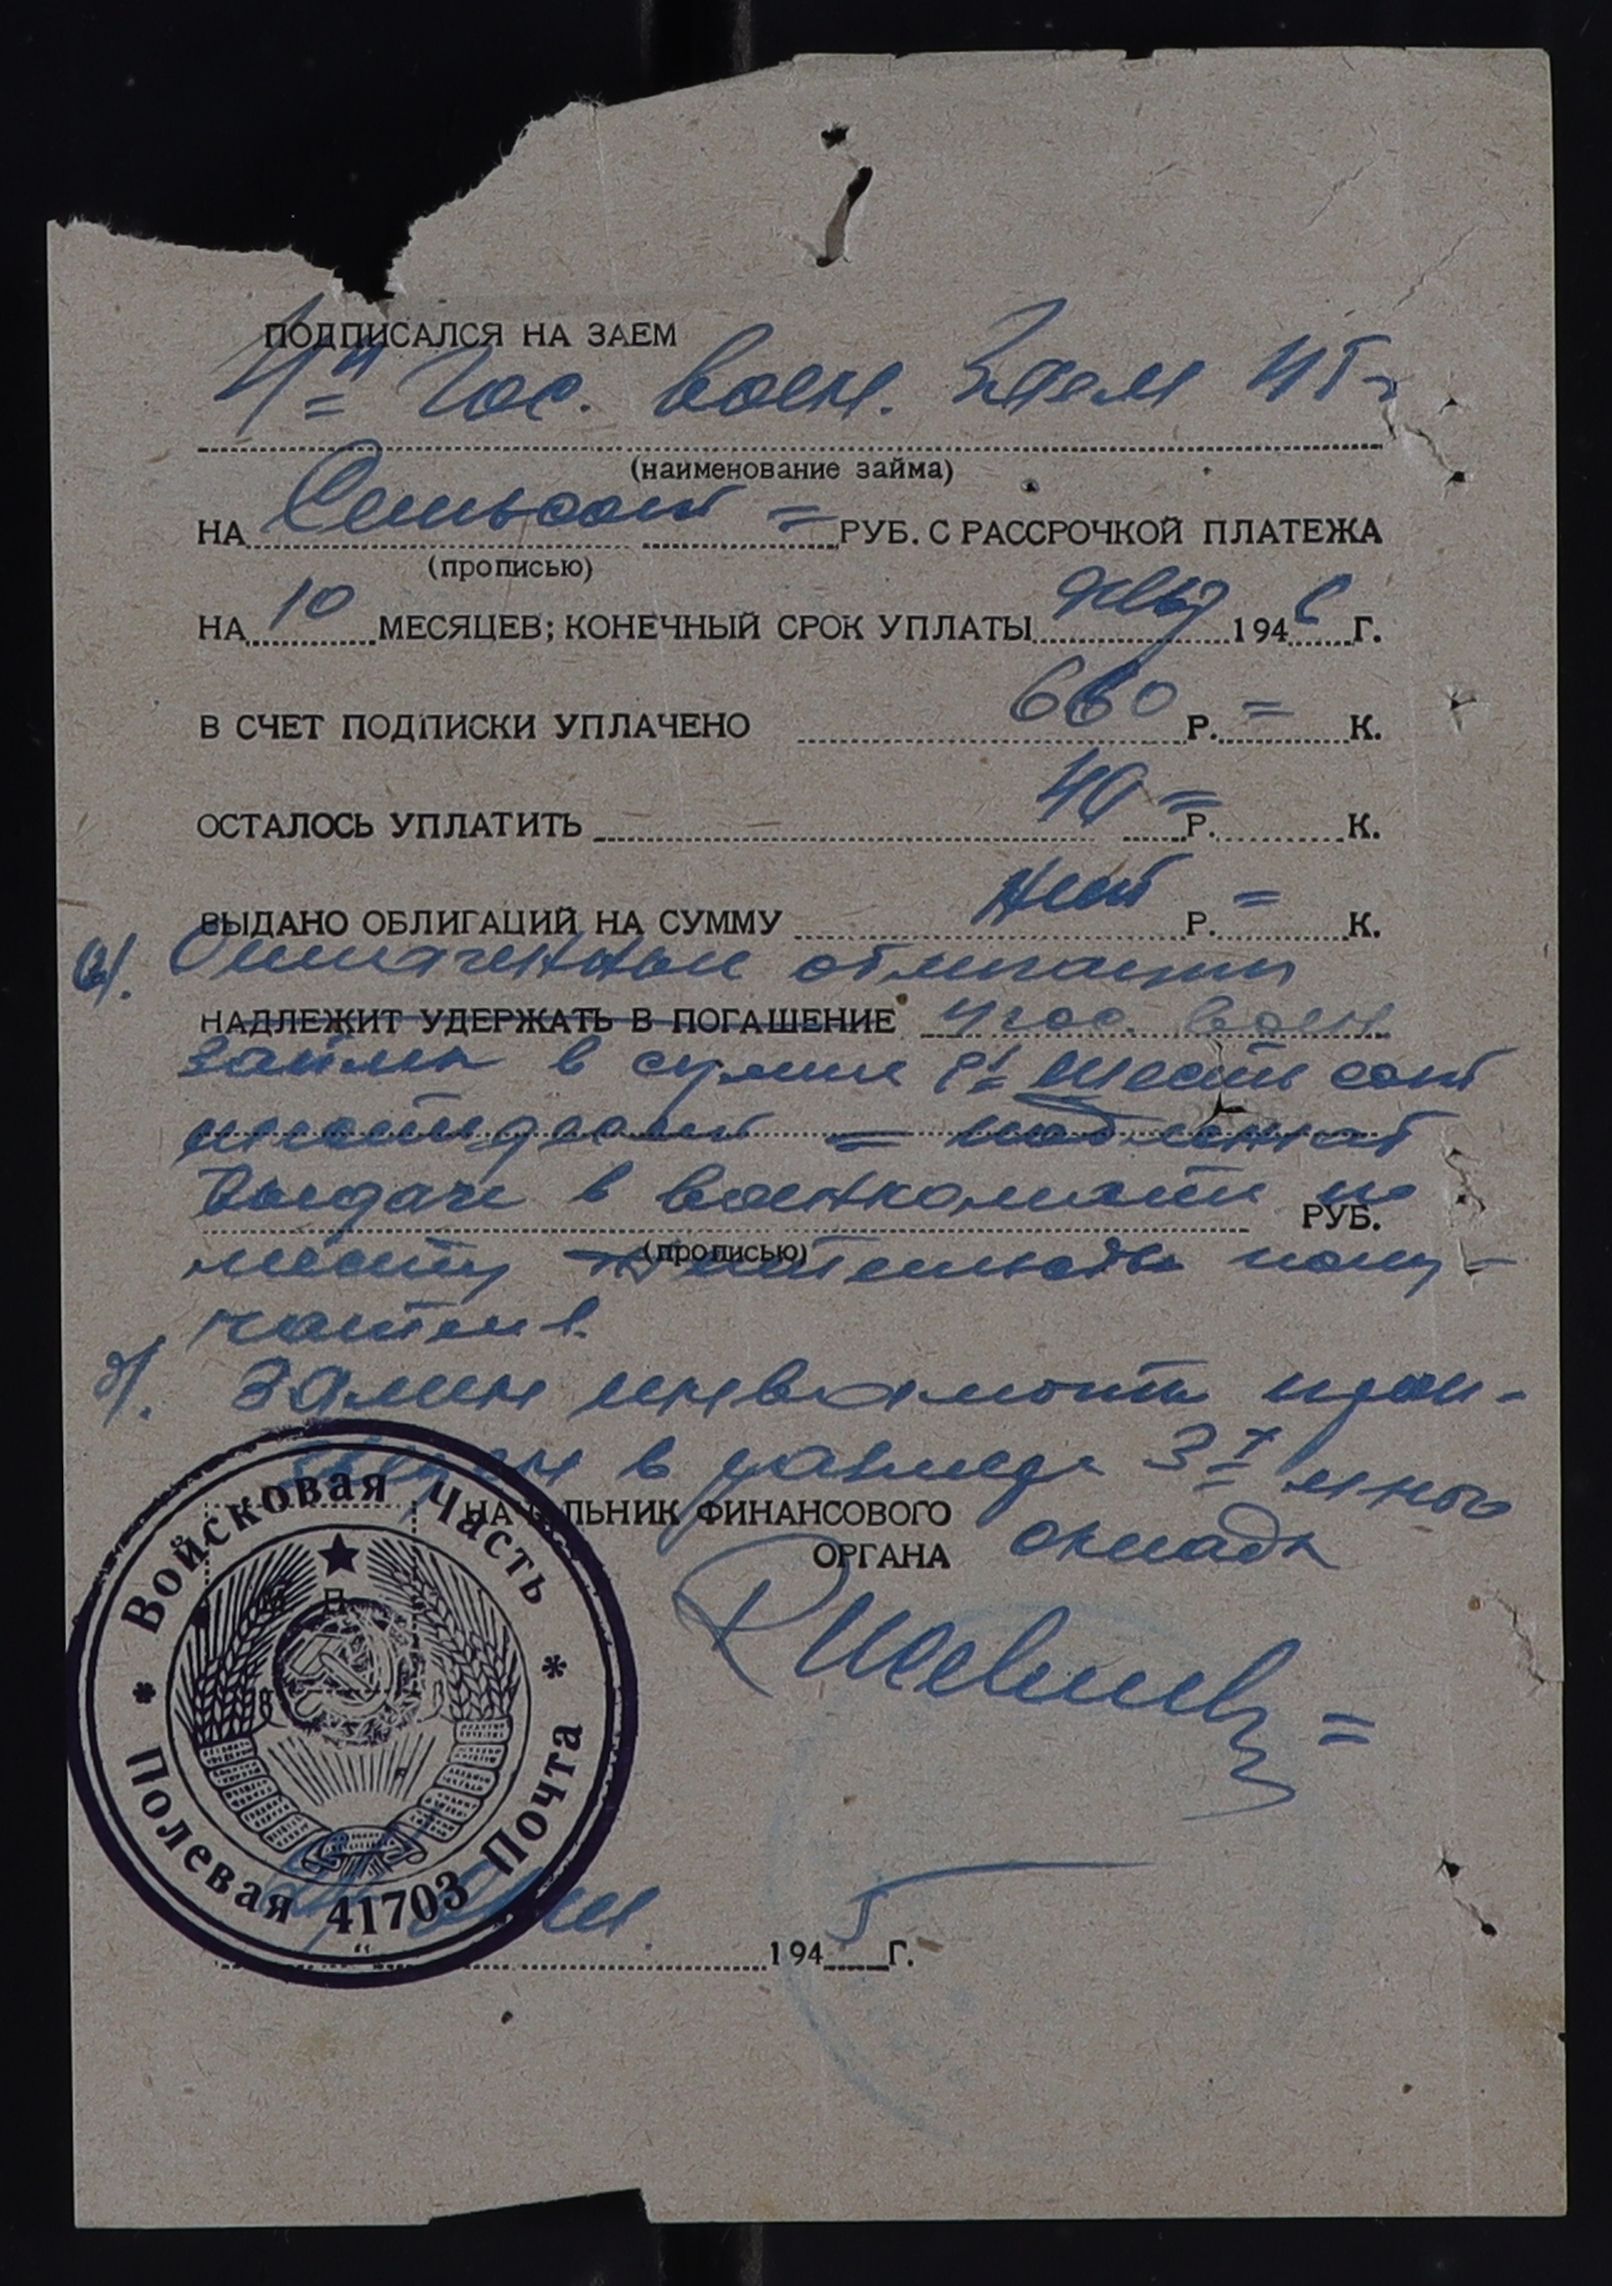 ПОДПИСАЛСЯ НА ЗАЕМ
4й Гос. воен. Заем 45 г
(наименование займа)
НА Семьсот = РУБ. С РАССРОЧКОЙ ПЛАТЕЖА
(прописью)
НА 10 МЕСЯЦЕВ; КОНЕЧНЫЙ СРОК УПЛАТЫ 1946 Г.
В СЧЕТ ПОДПИСКИ УПЛАЧЕНО 660 Р. = К.
ОСТАЛОСЬ УПЛАТИТЬ 40 = Р. К.
ВЫДАНО ОБЛИГАЦИЙ НА СУММУ нет Р. = К.
а). Оплаченные облигации
НАДЛЕЖИТ УДЕРЖАТЬ В ПОГАШЕНИЕ 4 гос. воен
займа в сумме Р! Шестьсот
шестьдесят = подлежат
Выдаче в военкомате по
РУБ.
(прописью)
месту жительства полу-
чателя.
б). в размере 3х м ного
НАЧАЛЬНИК ФИНАНСОВОГО
ОРГАНА
оклада
М П
Войсковая Часть
Полевая Почта
41703
1945 Г.